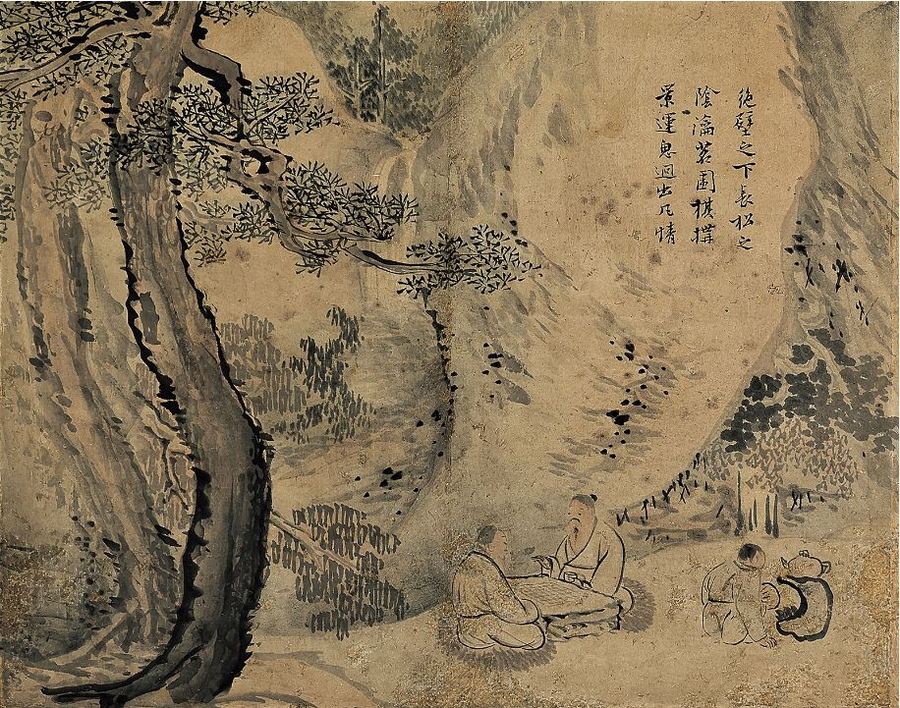 絶壁之下長松之
陰瀹茗圍棋摆
景運思迥出凡情